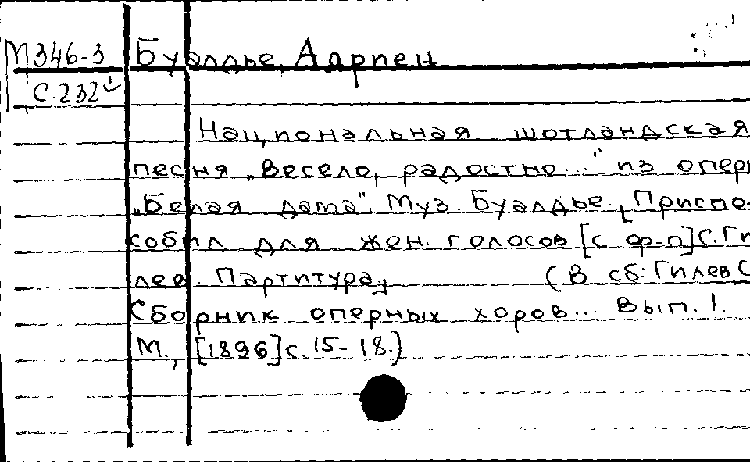 М346-3 Буэлдье, Адриен
С.232
Национальная шотландская
песня „Весело, радостно..." из опер
„Белая дама". Муз. Буэлдье, [Приспо-
собил для жен. голосов [с ф-п] С. Ги
лев. Партитура, (В сб: Гилев С
Сборник оперных хоров.. Вып. 1.
М., [1896] с. 15-18.)